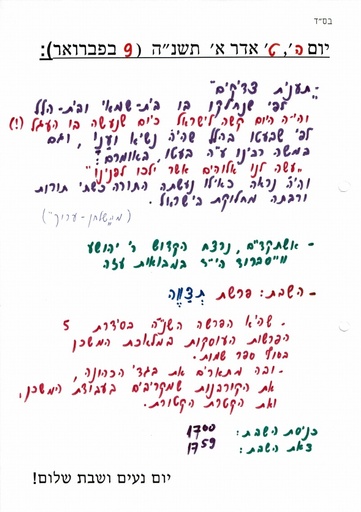 בס״ד
יום ה׳, ט׳ אדר א׳ תשנ״ה (9 בפברואר):
- תענית צדיקים״
לפי שנחלקו בו בית-שמאי ובית-הלל
והיה היום קשה לישראל כיום שנעשה בו העגל (!)
לפי שבעטו בהלל שהיה נשיא ועניו, וגם
במשה רבינו ע״ה בעטו באומרם:
״עשה לנו אלוהים אשר ילכו לפנינו״
והיה נראה כאילו נעשתה התורה כשתי תורות
ורבתה מחלוקת בישראל.
- אשתקד״ם, נרצח הקדוש ר׳ יהושע
ווייסברוד הי״ד במבואות עזה
- השבת: פרשת תְּצַוֶּה
- שהיא הפרשה השניה בסדרת 5
הפרשות העוסקות במלאכת המשכן
בסוף ספר שמות.
- ובה מתוארים את בגדי הכהונה,
את הקורבנות שמקריבים בעבודת המשכן,
ואת הקטרת הקטורת.
כניסת השבת: 1700
צאת השבת: 1759
יום נעים ושבת שלום!